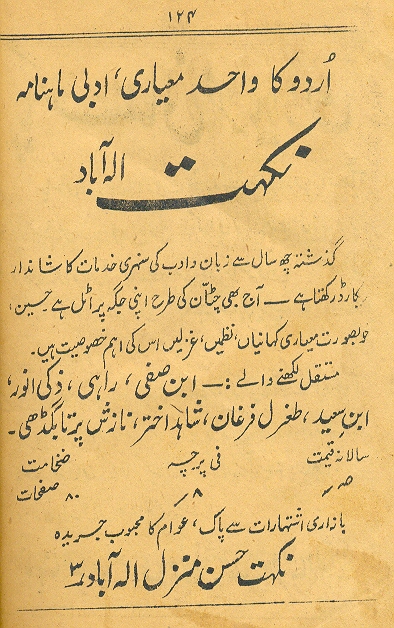 ۱۲۴
اُردو کا واحد معیاری، ادبی ماہنامہ
نکہت الہ آباد
گذشتہ چھ سال سے زبان و ادب کی سنہری خدمات کا شاندار
ریکارڈ رکھتا ہے — آج بھی چٹان کی طرح اپنی جگہ پر اٹل ہے۔ حسین،
خوبصورت معیاری کہانیاں، نظمیں، غزلیں اس کی اہم خصوصیت ہیں۔
مستقل لکھنے والے :— ابن صفی، راہی، ذکی انور،
ابن سعید، طغرل فرغان، شاہد اختر، نازش پرتابگڈھی۔
سالانہ قیمت فی پرچہ ضخامت
۸؍ ۸۰ صفحات
بازاری اشتہارات سے پاک، عوام کا محبوب جریدہ
نکہت حسن منزل الہ آباد ۳